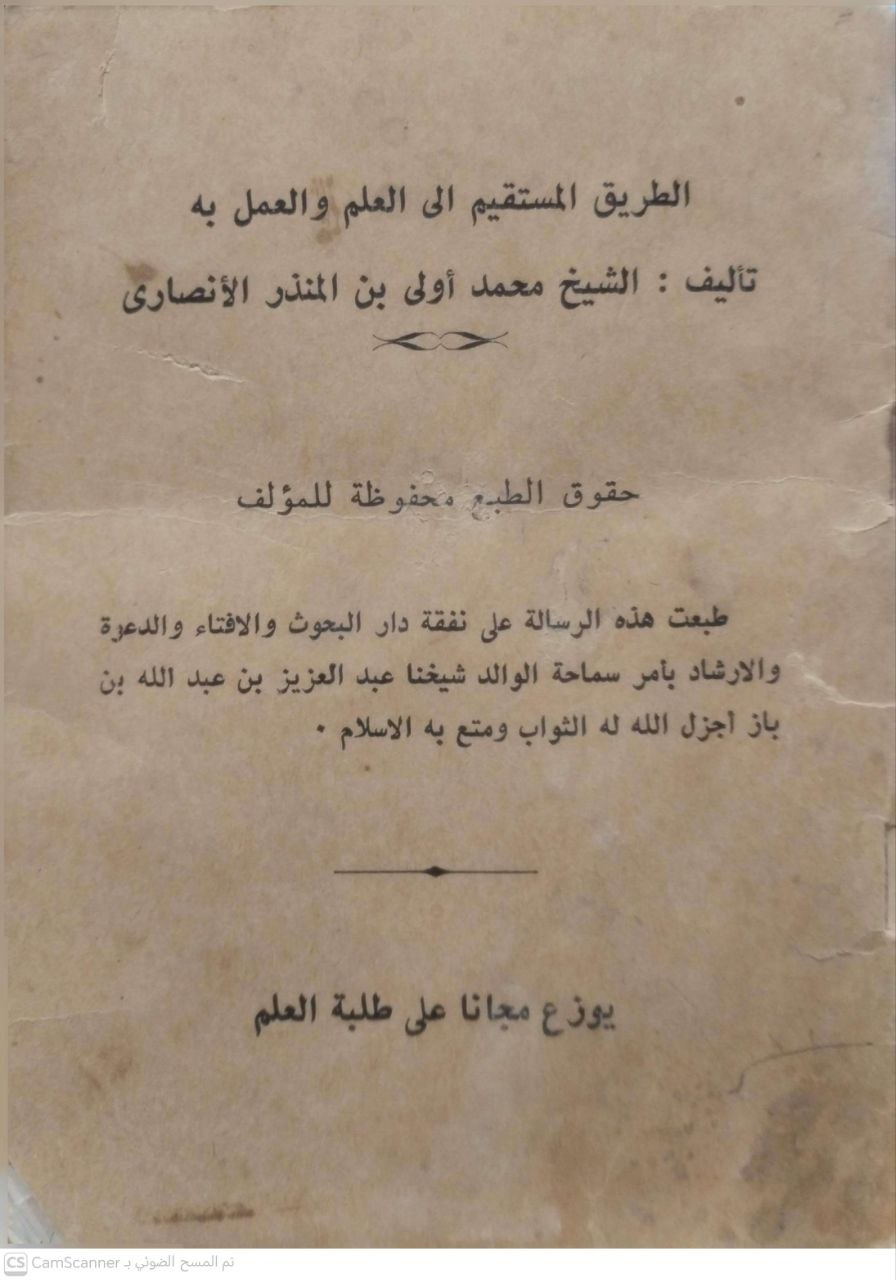 الطريق المستقيم الى العلم والعمل به
تأليف : الشيخ محمد أولى بن المنذر الأنصارى
حقوق الطبع محفوظة للمؤلف
طبعت هذه الرسالة على نفقة دار البحوث والافتاء والدعوة
والارشاد بأمر سماحة الوالد شيخنا عبد العزيز بن عبد الله بن
باز أجزل الله له الثواب ومتع به الاسلام ٠
يوزع مجانا على طلبة العلم
CS CamScanner تم المسح الضوئي بـ